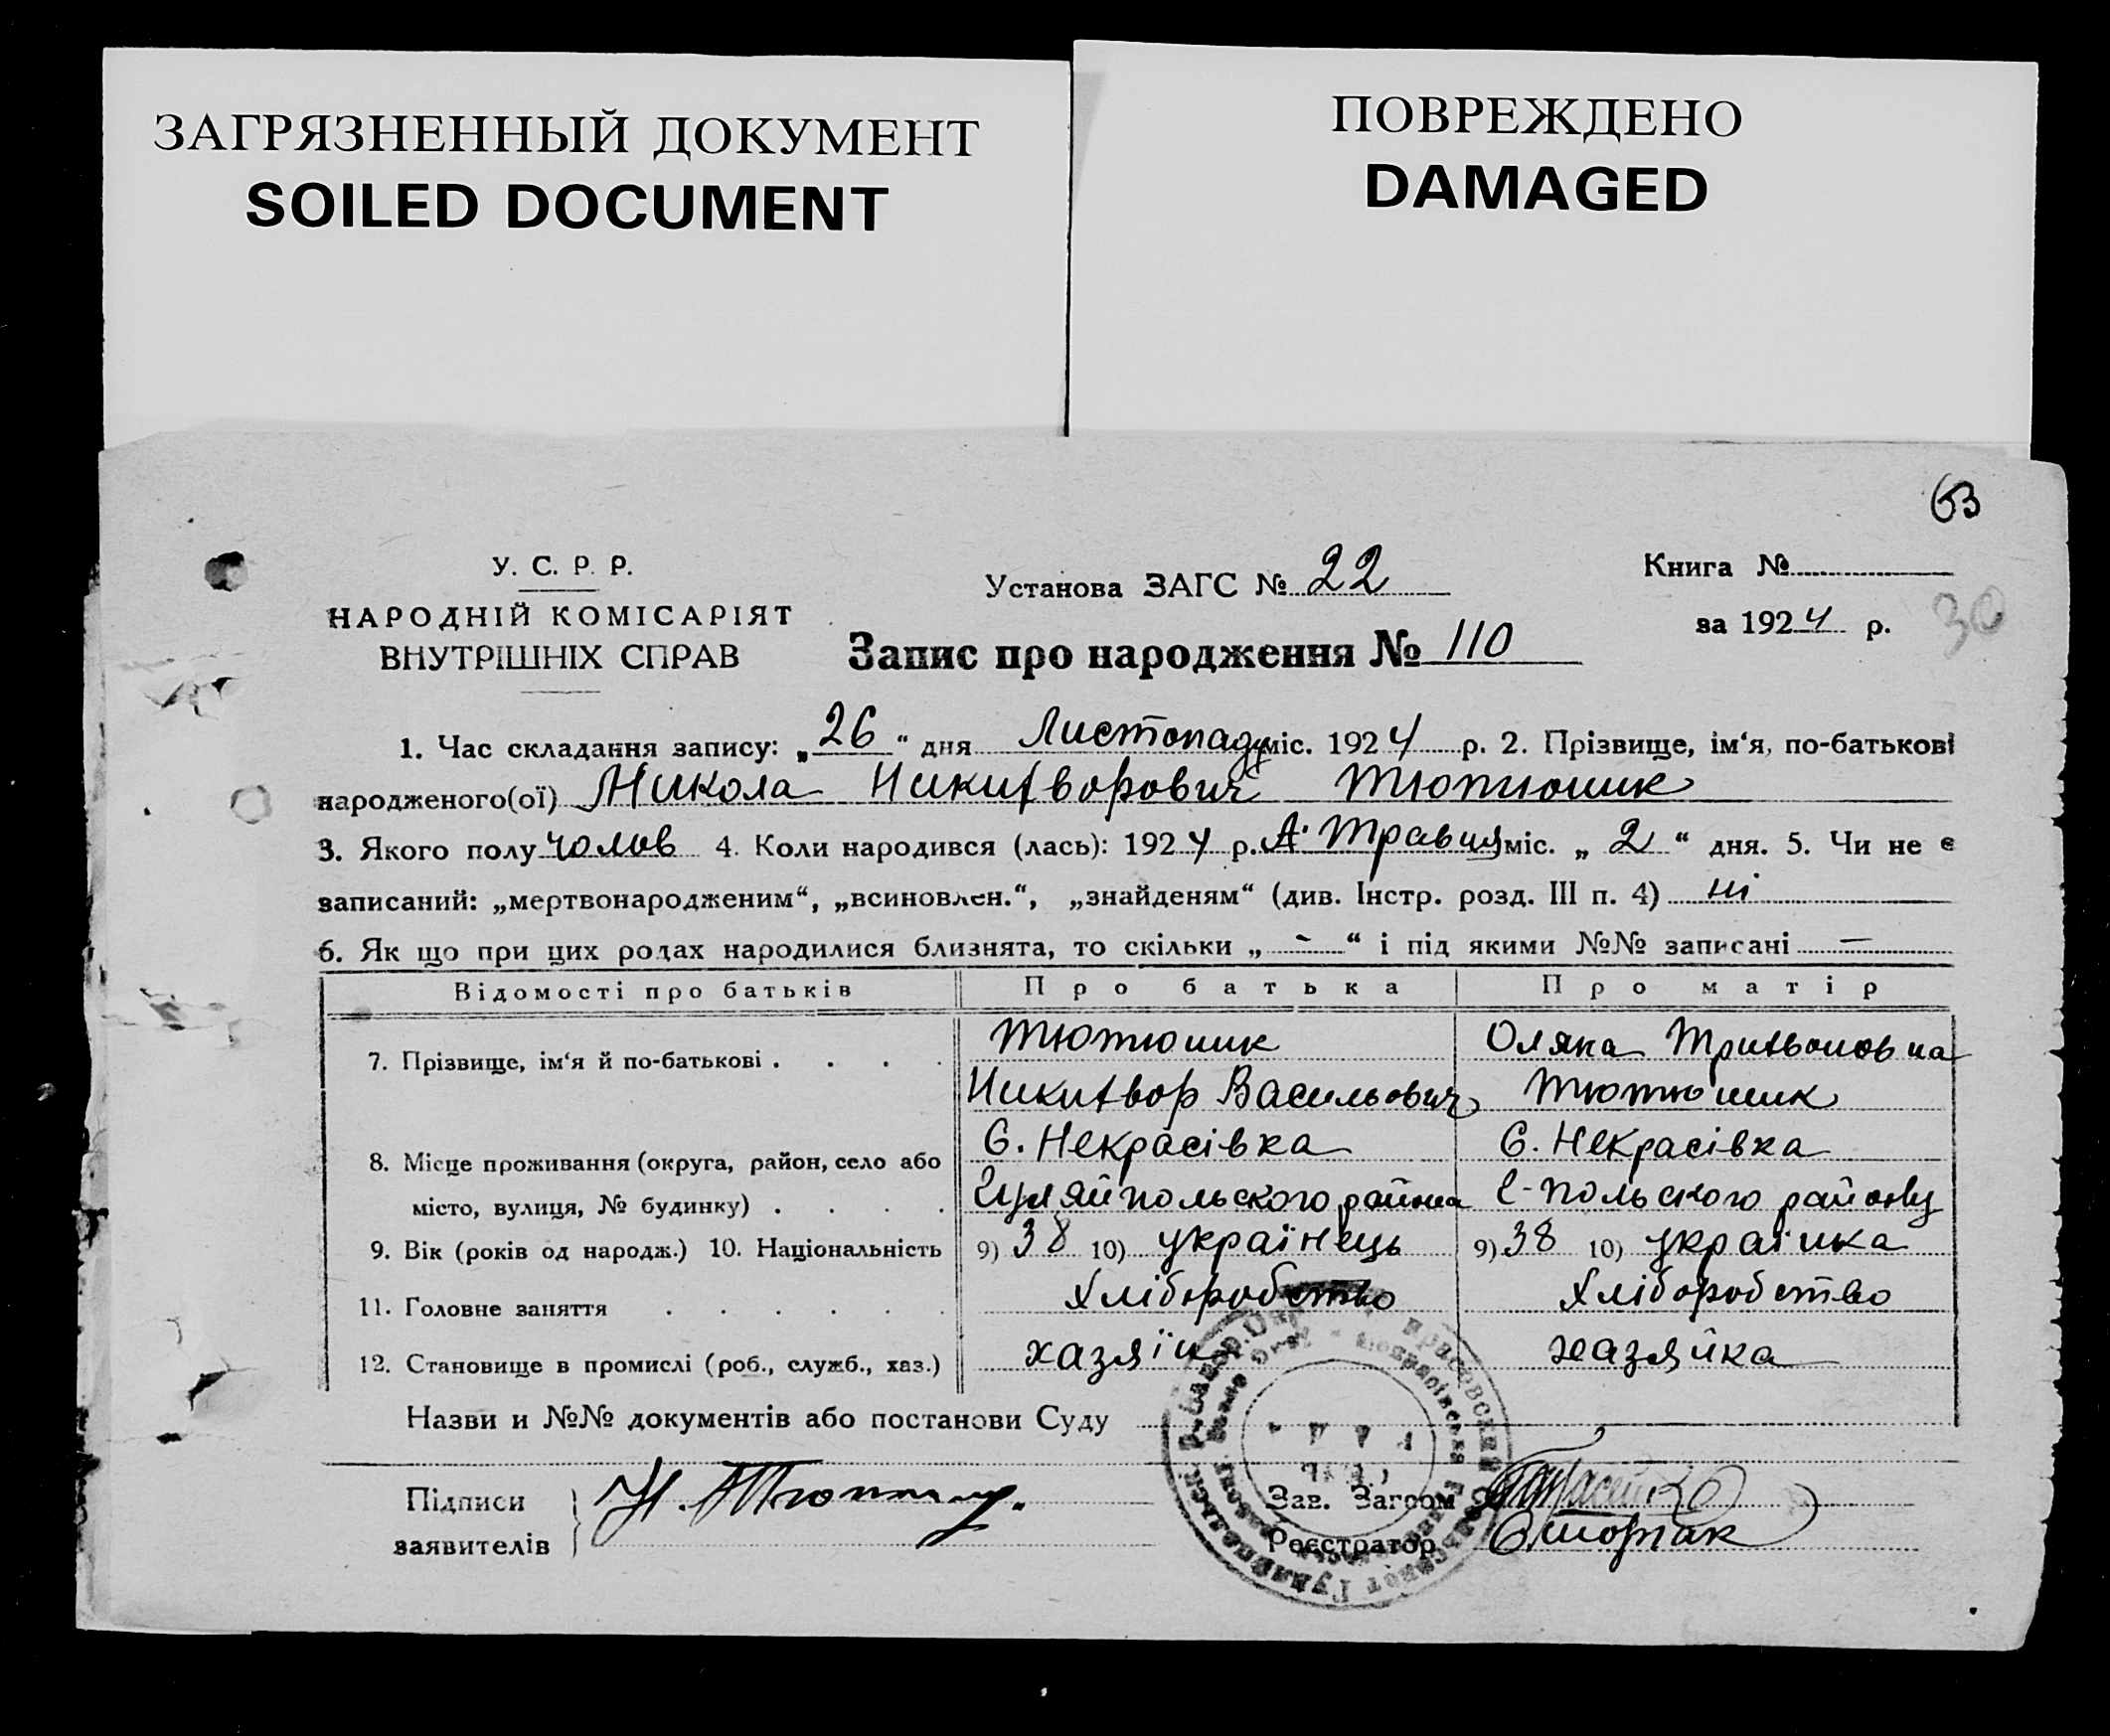 ЗАГРЯЗНЕННЫЙ ДОКУМЕНТ
SOILED DOCUMENT
ПОВРЕЖДЕНО
DAMAGED
63
У. С. Р. Р.
НАРОДНІЙ КОМІСАРІЯТ
ВНУТРІШНІХ СПРАВ
Установа ЗАГС № 22
Книга №
за 1924 р. 30
Запис про народження № 110
1. Час складання запису: „26“ дня Листопаду міс. 1924 р. 2. Прізвище, ім‘я, по-батькові
народженого(ої) Микола Никифорович Тютюник
3. Якого полу чолов 4. Коли народився (лась): 1924 р. Травня міс. „2“ дня. 5. Чи не є
записаний: „мертвонародженим“, „всиновлен.“, „знайденям“ (див. Інстр. розд. III п. 4) ні
6. Як що при цих родах народилися близнята, то скільки „-“ і під якими №№ записані —
Відомості про батьків Про батька Про матір
7. Прізвище, ім‘я й по-батькові . . . . Тютюник Оляна Трифоновна
Никифор Васильович Тютюник
8. Місце проживання (округа, район, село або С. Некрасівка С. Некрасівка
місто, вулиця, № будинку) . . . . Гуляйпольского района Г-польского району
9. Вік (років од народж.) 10. Національність 9) 38 10) українець 9) 38 10) українка
11. Головне заняття . . . . . . Хліборобство Хліборобство
12. Становище в промислі (роб., служб., хаз.) хазяїн хазяйка
Назви и №№ документів або постанови Суду
Підписи
заявителів
Зав. Загсом
Реєстратор